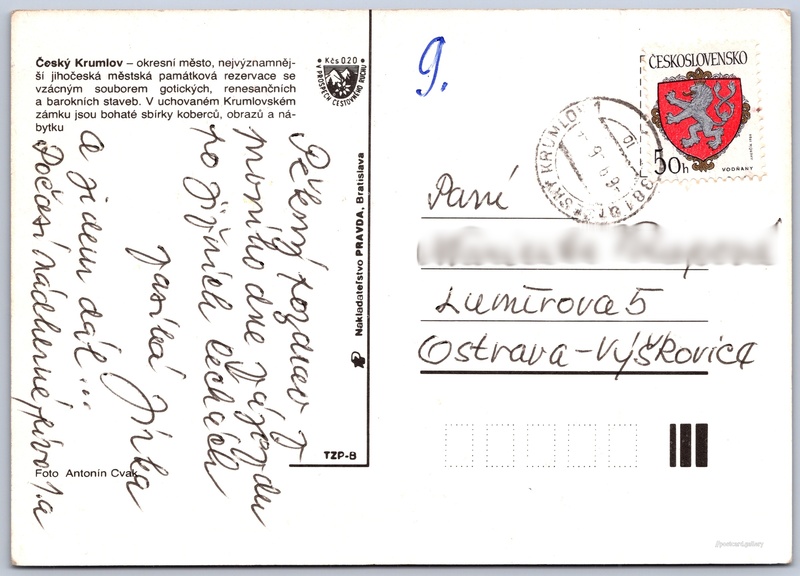 Český Krumlov – okresní město, nejvýznamněj-
ší jihočeská městská památková rezervace se
vzácným souborem gotických, renesančních
a barokních staveb. V uchovaném Krumlovském
zámku jsou bohaté sbírky koberců, obrazů a ná-
bytku
Kčs 0,20
V PROSPĚCH CESTOVNÍHO RUCHU
Pěkný pozdrav z
prvního dne zájezdu
po jižních Čechách
zasílá Jirka
a jedem dál...
Počasí nádherné, pivo 1.a
Foto Antonín Cvak
Nakladateľstvo PRAVDA, Bratislava
TZP-B
9.
ČESKOSLOVENSKO
50h
VODŇANY
ČESKÝ KRUMLOV 1
381 01
Paní
Lumírova 5
Ostrava-Výškovice